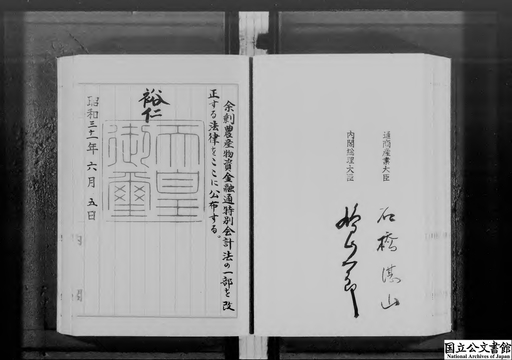 余剰農産物資金融通特別会計法の一部を改
正する法律をここに公布する。
裕仁
天皇
御璽
昭和三十一年六月五日
通商産業大臣 石橋湛山
内閣総理大臣 鳩山一郎
国立公文書館
National Archives of Japan